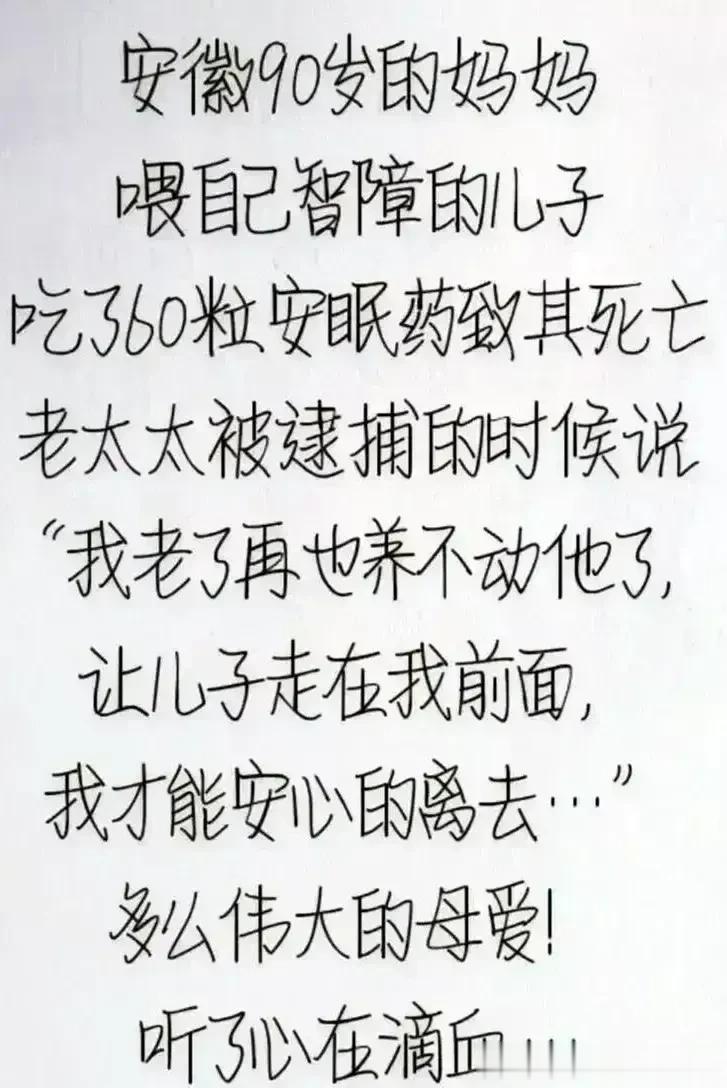 安徽90岁的妈妈
喂自己智障的儿子
吃了60粒安眠药致其死亡
老太太被逮捕的时候说
“我老了再也养不动他了,
让儿子走在我前面,
我才能安心的离去…”
多么伟大的母爱!
听了心在滴血…